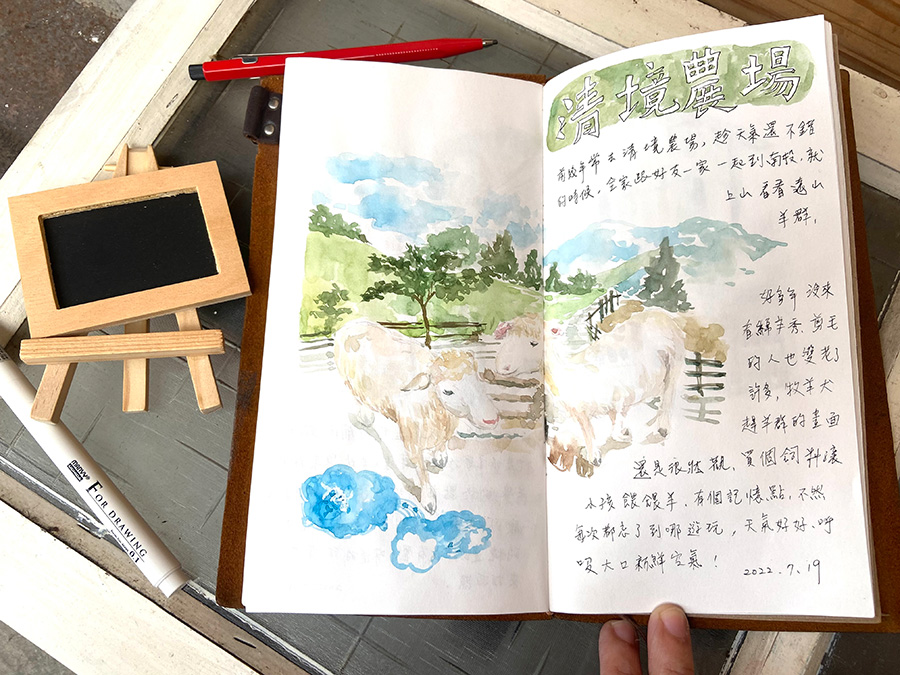 清境農場
年常去清境農場,趁天氣還不錯
的時候,全家跟好友一家一起到南投,就
上山看看遠山
羊群,
好多年沒來
看綿羊秀、剪毛
的人也變老了
許多,牧羊犬
趕羊群的畫面
還是很壯觀、買個飼料讓
小孩餵餵羊,有個記憶點,不然
每次都忘了到哪遊玩,天氣好好、呼
吸大口新鮮空氣!
2022.7.19
FOR DRAWING